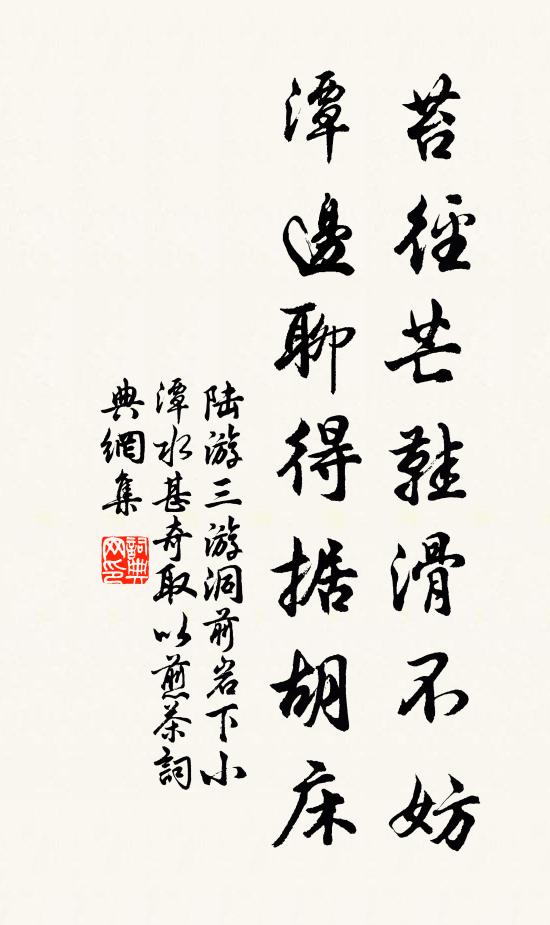 苔徑芒鞵滑不妨
潭邊聊得据胡床
陆游三游洞前岩下小
潭水甚奇取以煎茶詞
典網集
詞典网印